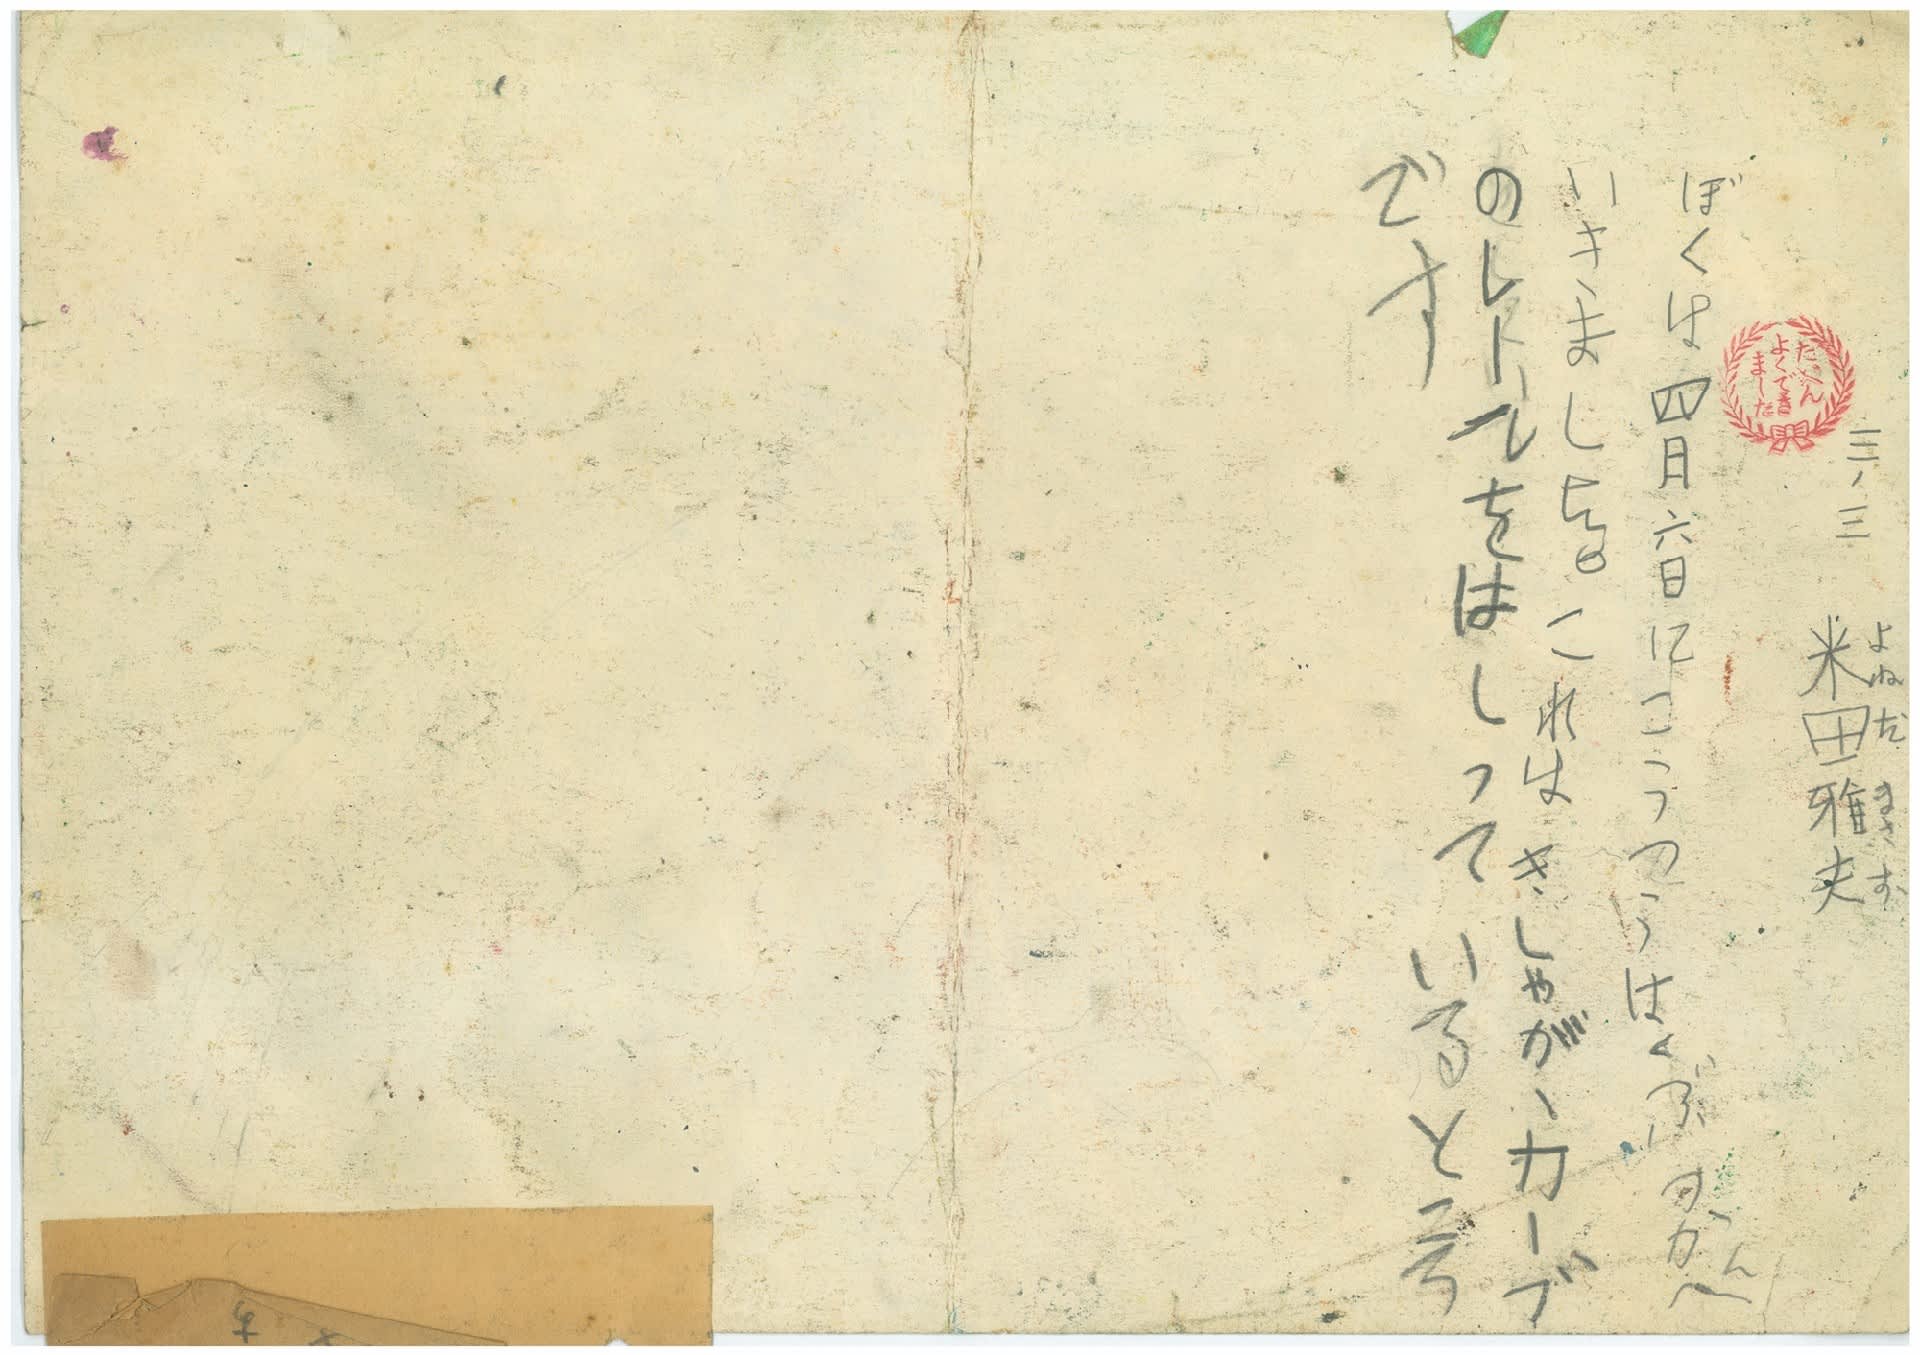 三ノ三 米田雅夫
よねだ まさお
たいへん
よくでき
ました
ぼくは四月六日にこうつうはくぶつかんへ
いきました。これはきしゃが、カーブ
のレールをはしっているところ
です